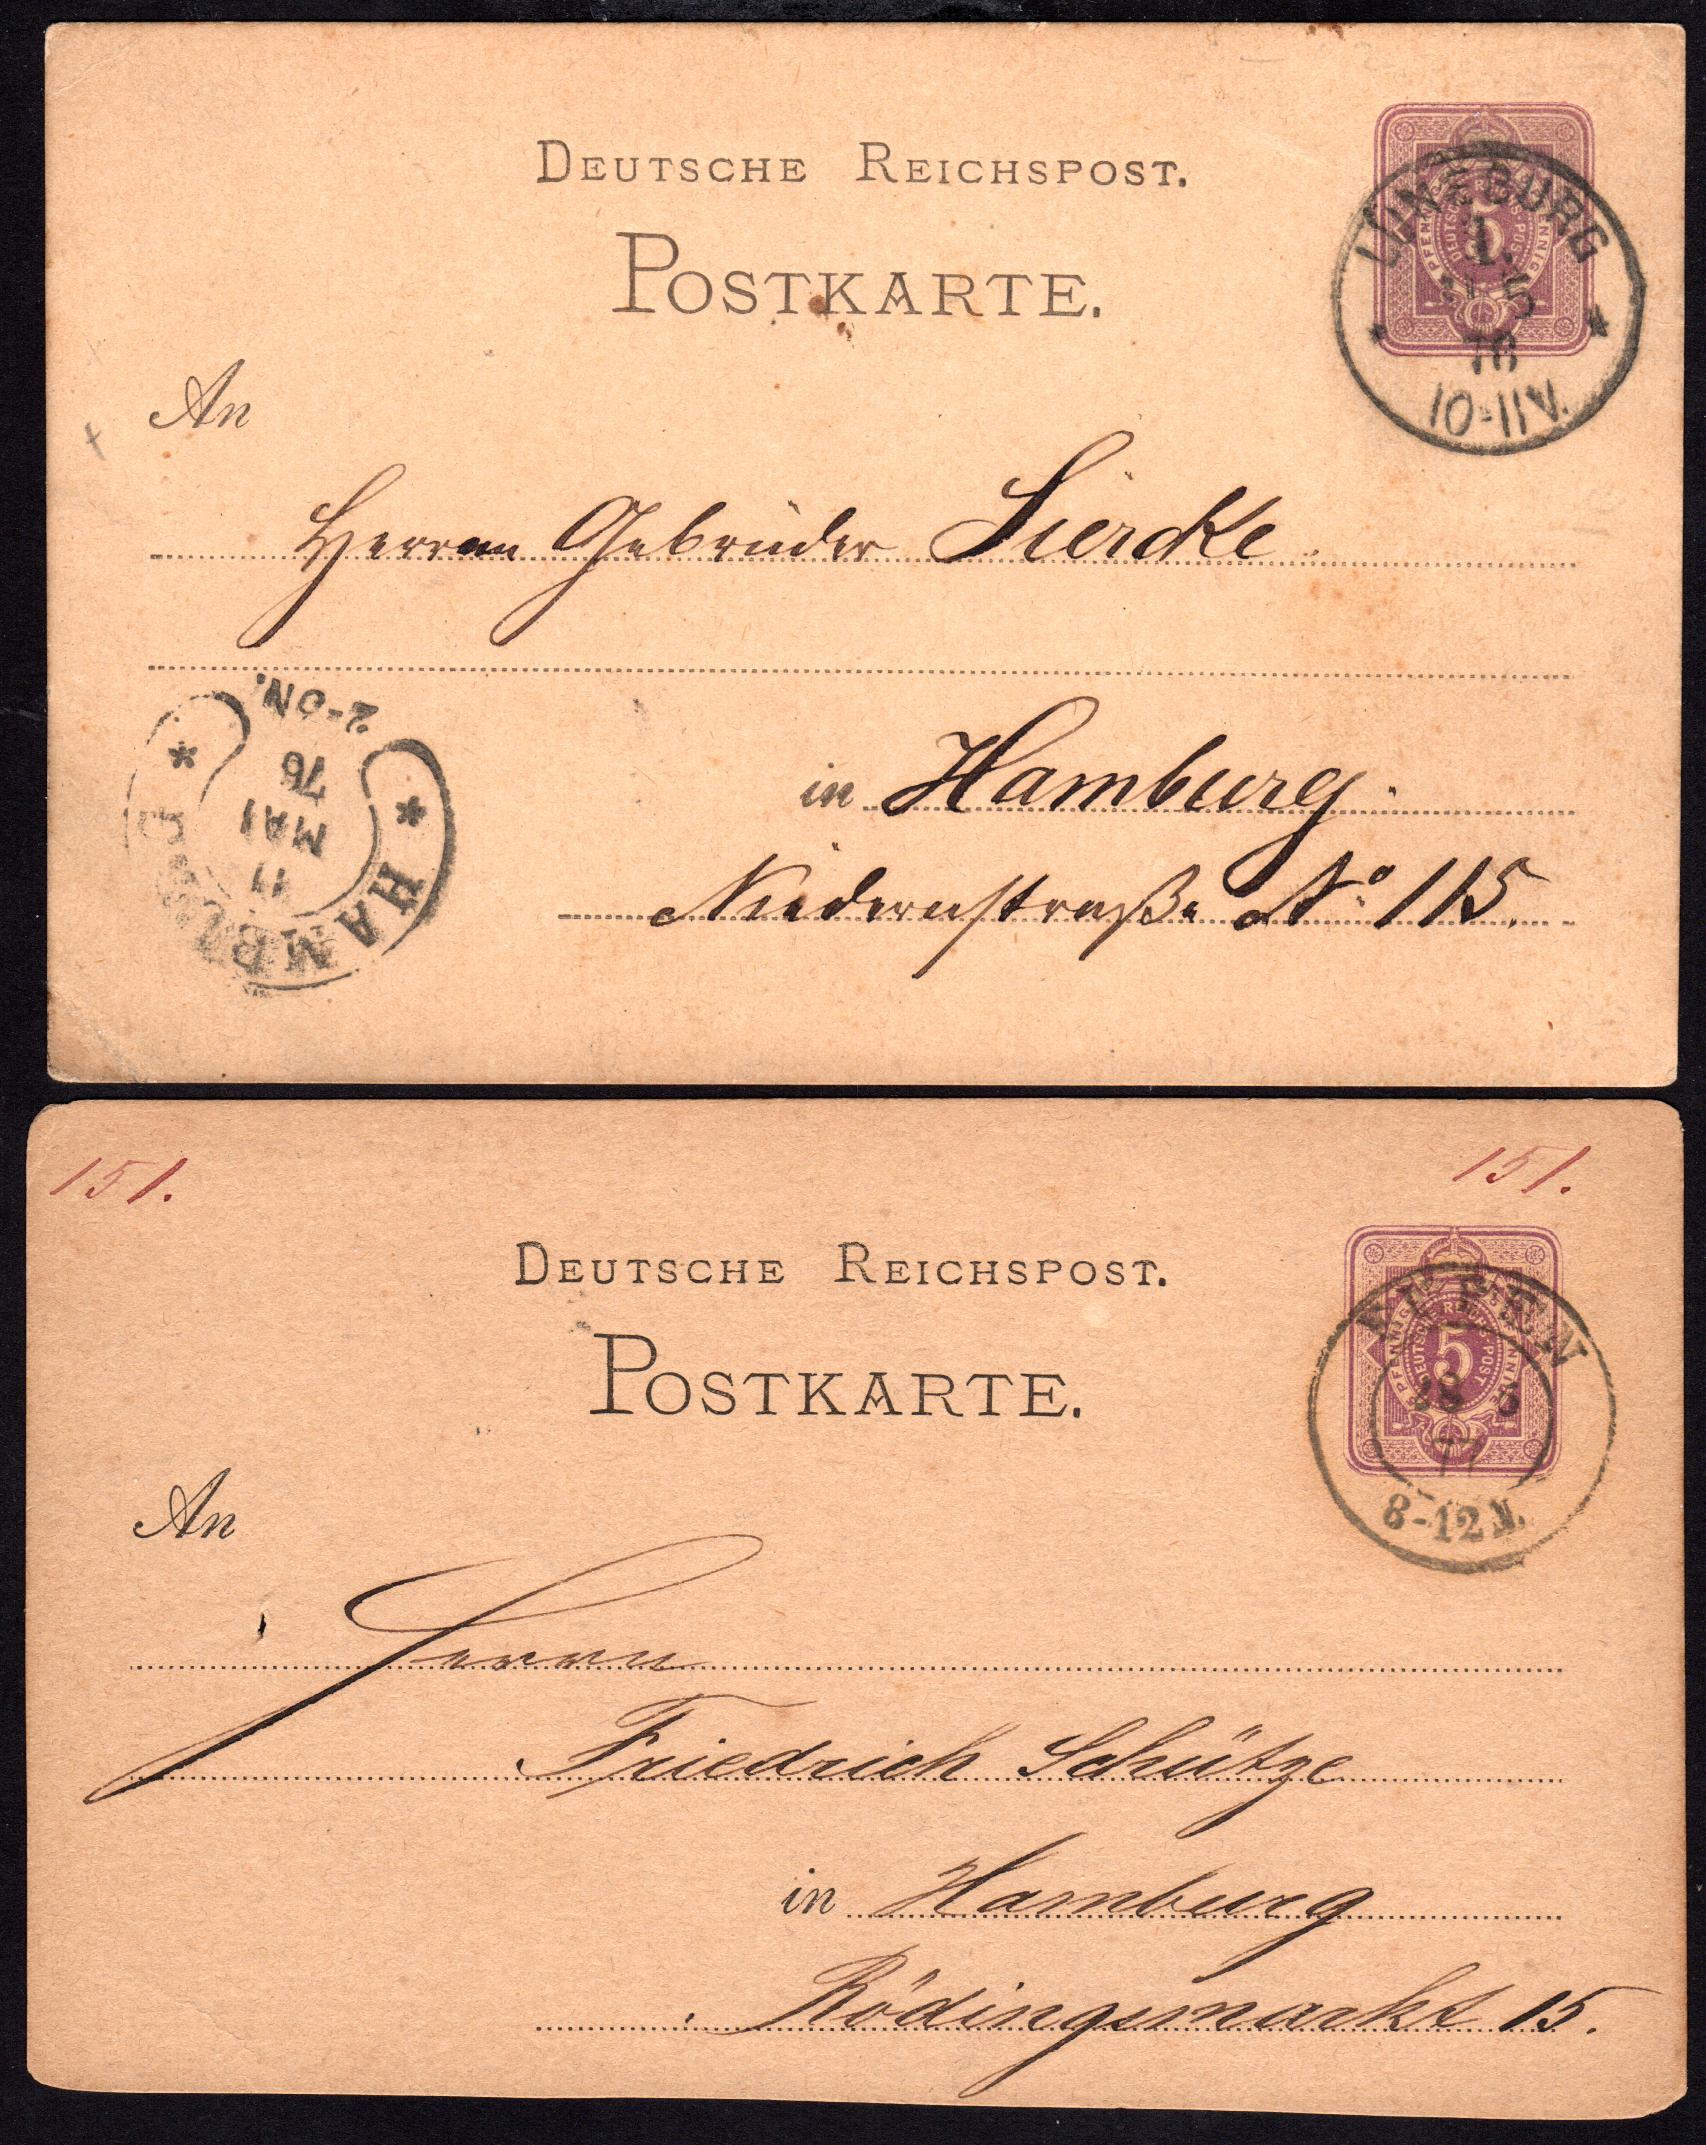 DEUTSCHE REICHSPOST.
POSTKARTE.
5 PFENNIG
LÜNEBURG
1.
5
76
10-11V.
An
Herren Gebrüder Siercke.
in Hamburg.
Niedernstraße No 115.
HAMBURG
MAI
76
2-3N.
151.
151.
DEUTSCHE REICHSPOST.
POSTKARTE.
5 PFENNIG
DEUTSCHE REICHS-POST
EUPEN
5
77
8-12 N.
An
Herrn
Friedrich Schütze
in Hamburg
Rödingsmarkt 15.